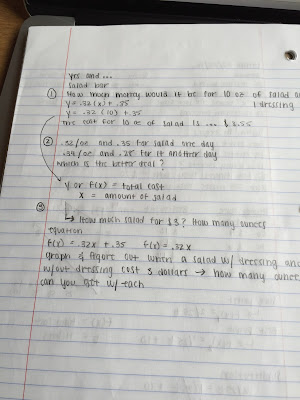 yes and...
salad bar
① How much money would it be for 10 oz of salad and
1 dressing
y = .32(x) + .35
y = .32(10) + .35
the cost for 10 oz of salad is ... $ 3.55
② .32/oz and .35 for salad one day
.34/oz and .25 for it another day
which is the better deal?
y or f(x) = total cost
x = amount of salad
③
How much salad for $3? How many ounces
equation
f(x) = .32x + .35 f(x) = .32x
graph & figure out when a salad w/ dressing and
w/out dressing cost 3 dollars → how many ounces
can you get w/ each